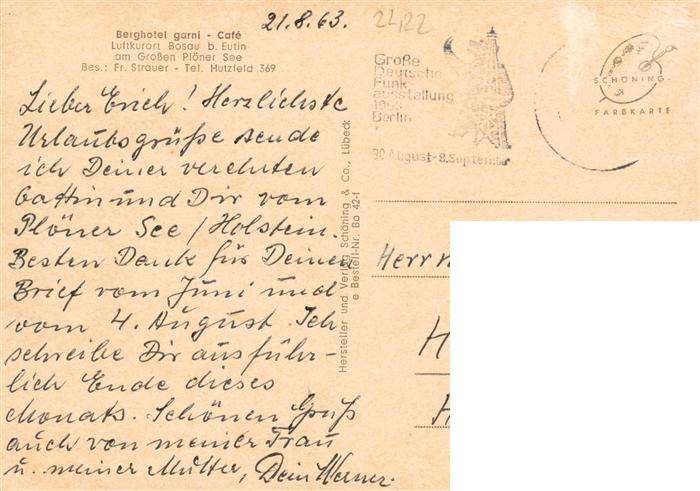 21.8.63.
24,22
Berghotel garni - Café
Luftkurort Bosau b. Eutin
am Großen Plöner See
Bes.: Fr. Strauer - Tel. Hutzfeld 369
Lieber Erich! Herzlichste
Urlaubsgrüße sende
ich Deiner verehrten
Gattin und Dir vom
Plöner See / Holstein.
Besten Dank für Deinen
Brief vom Juni und
vom 4. August. Ich
schreibe Dir ausführ-
lich Ende dieses
Monats. Schönen Gruß
auch von meiner Frau
u. meiner Mutter, Dein Werner.
Hersteller und Verlag Schöning & Co., Lübeck
e Bestell-Nr. Bo 42-f
Große
Deutsche
Funk
ausstellung
1963
Berlin
30 August - 8. September
SCHÖNING-
FARBKARTE
Herrn
H
H